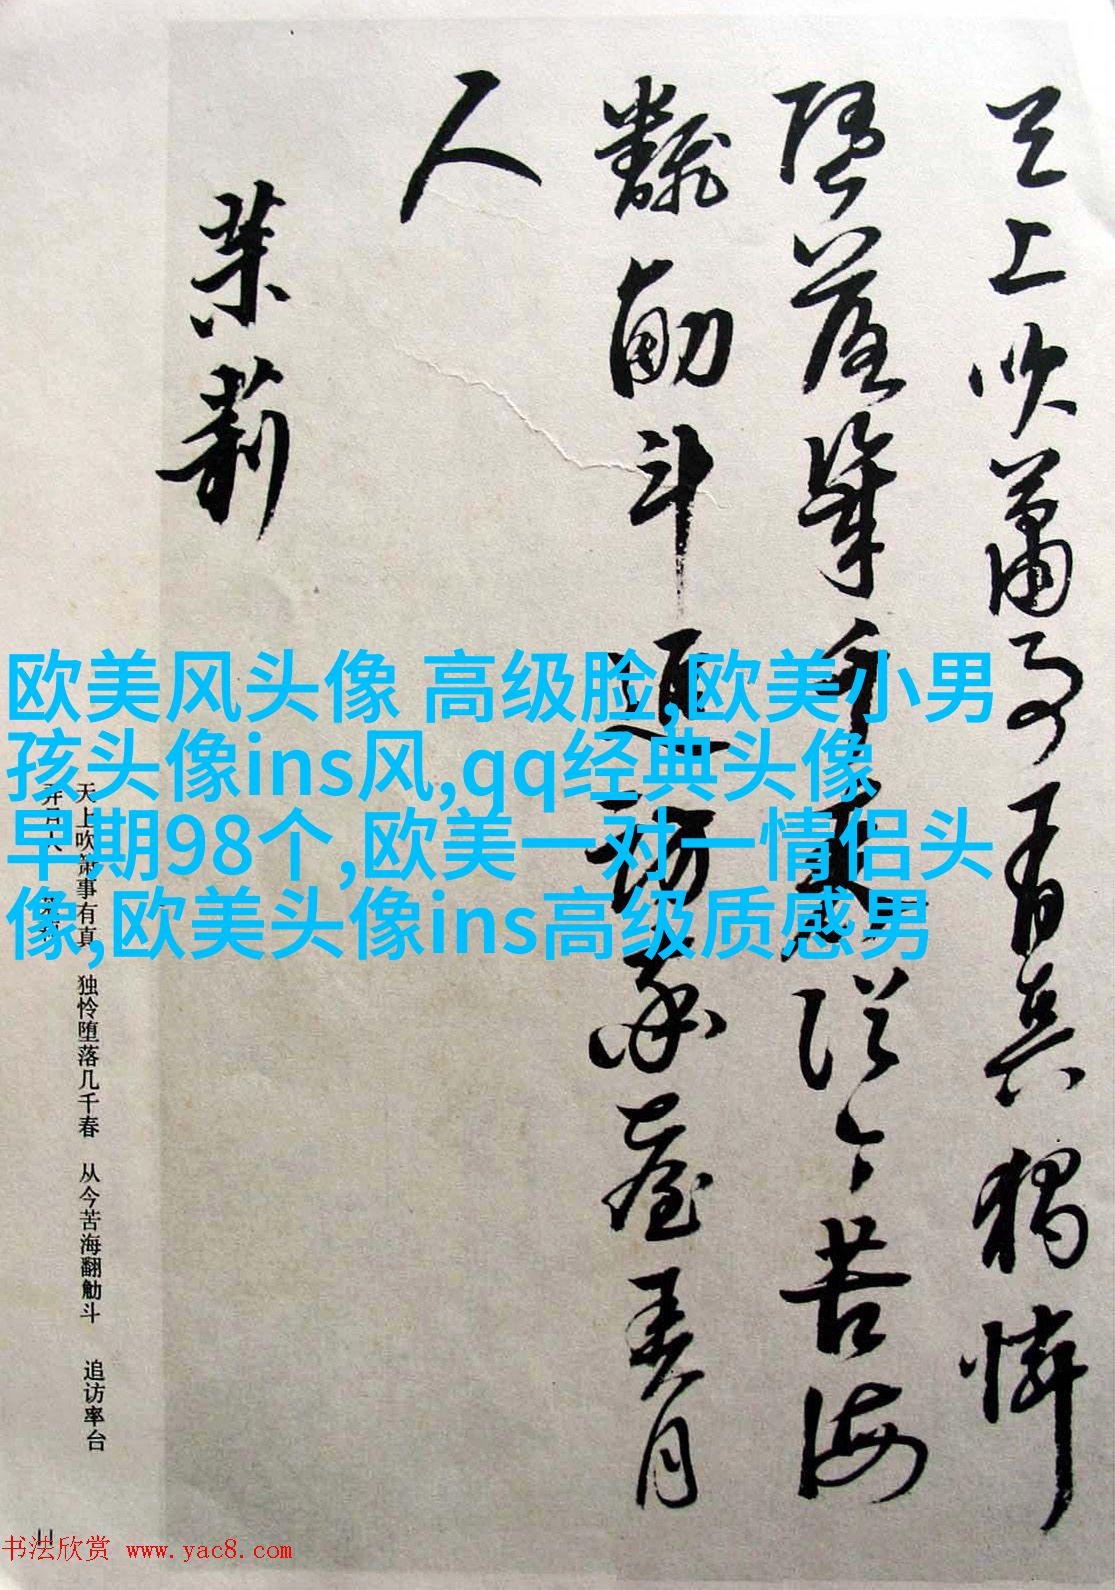 天上吹蕭事有真獨憐
墮落幾千春從今苦海
飜觔斗追訪秦臺弄月
人
茉莉
欧美风头像 高级脸,欧美小男
孩头像ins风,qq经典头像
早期98个,欧美一对一情侣头
像,欧美头像ins高级质感男
天上吹箫事有真 独怜堕落几千春 从今苦海翻觔斗 追访率台
弄月人 茉莉
11
书法欣赏 www.yac8.com